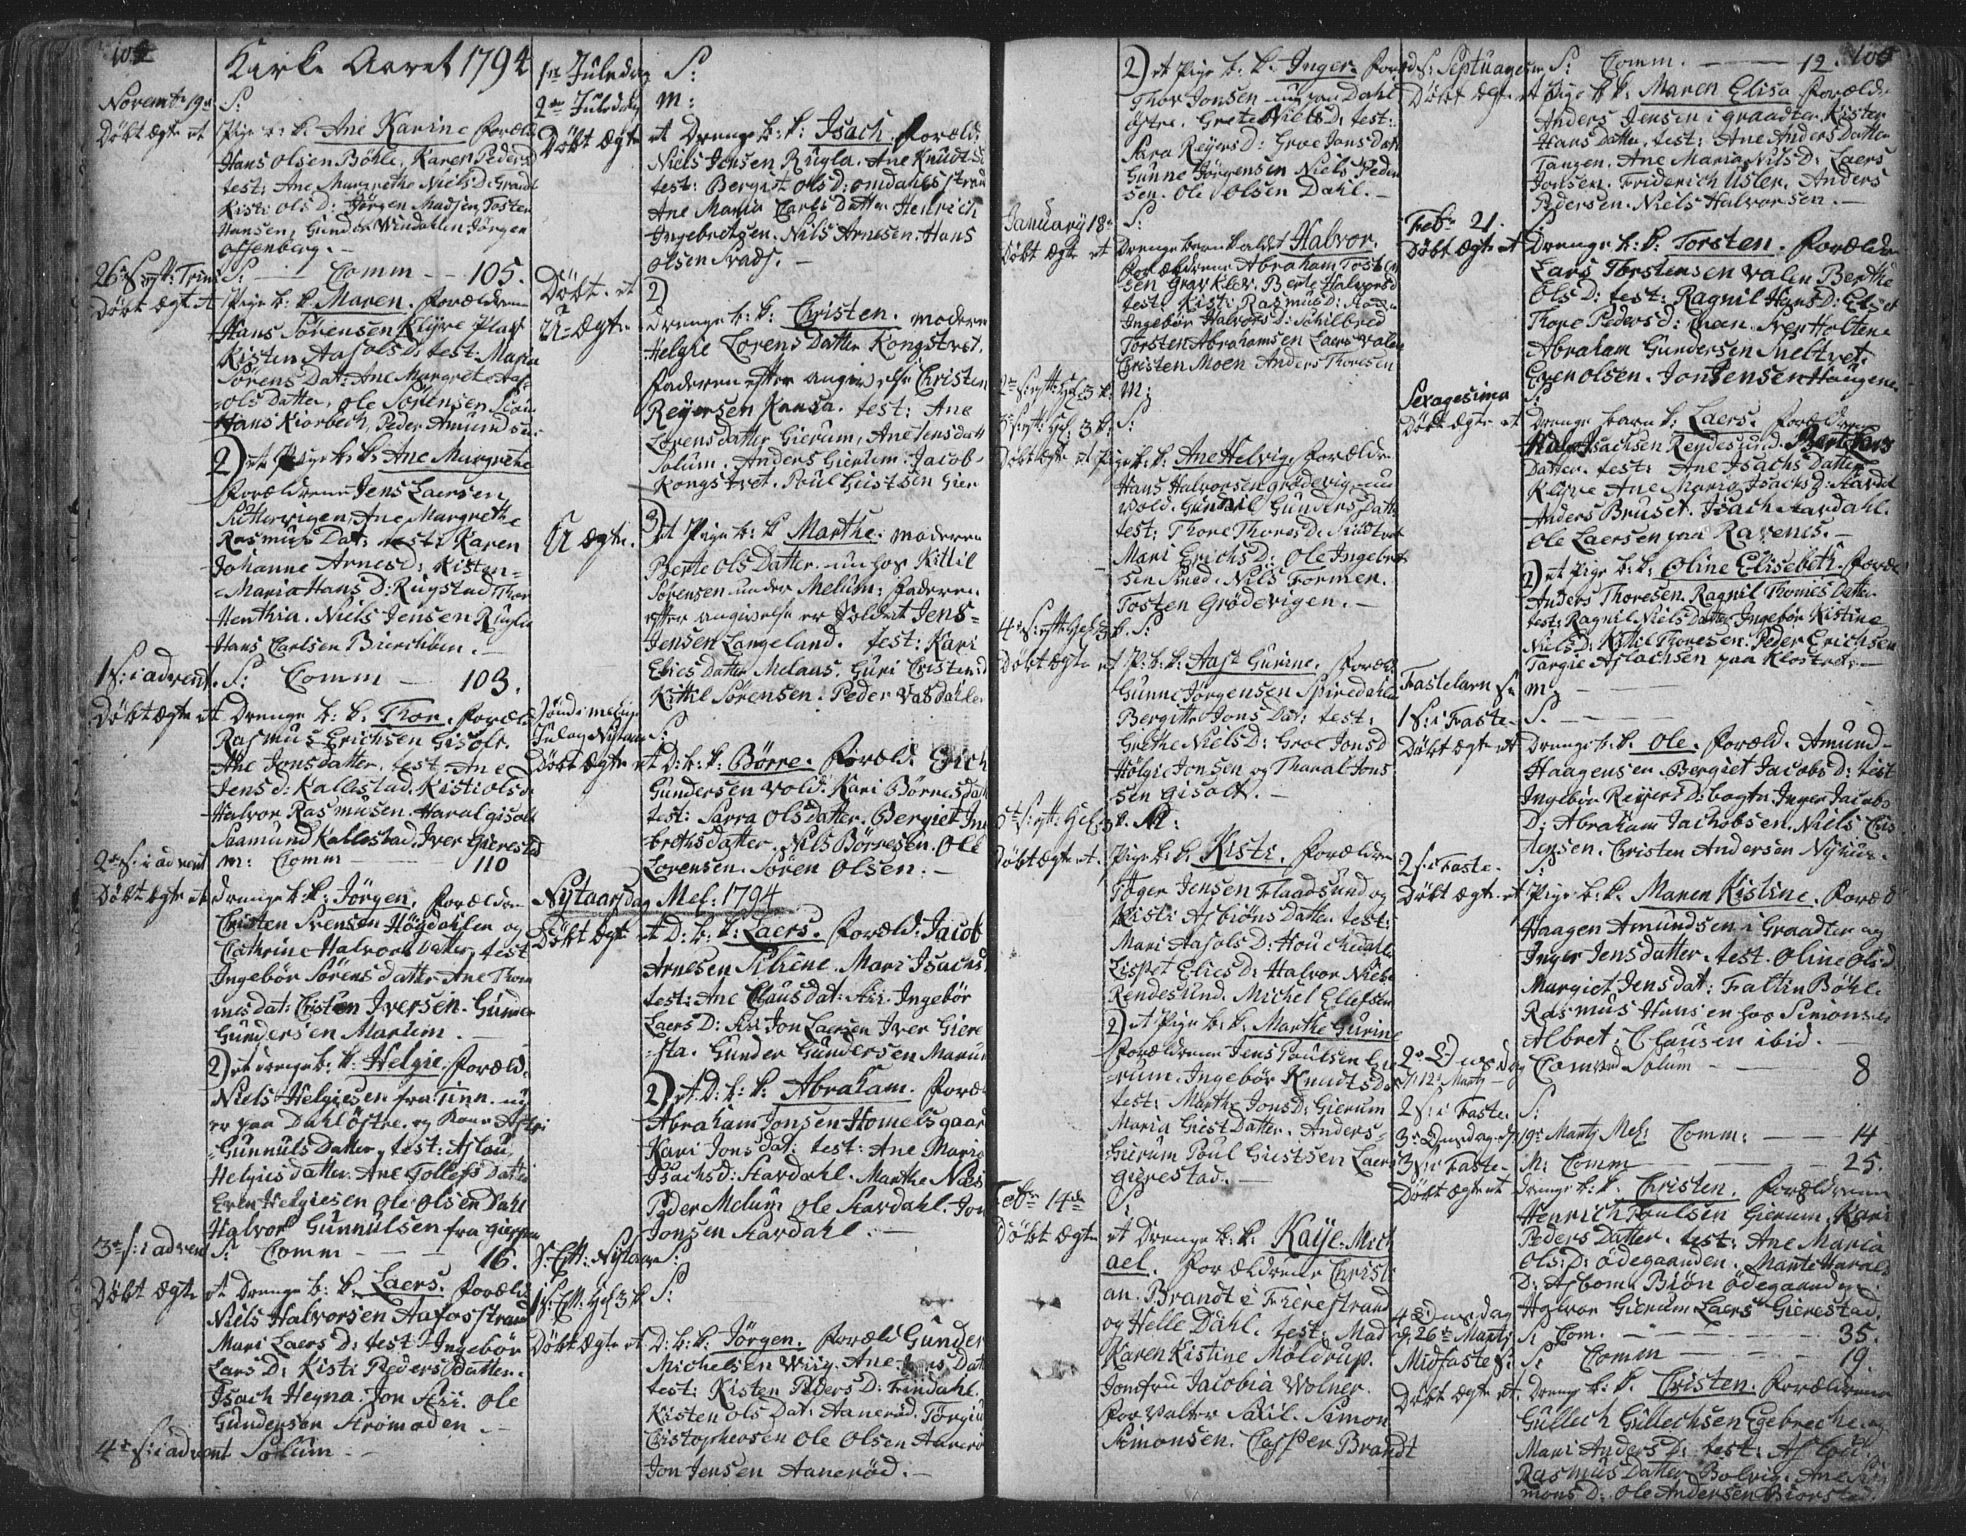 104
Kirke Aaret 1794
Novembr 19de S:
Döbt ægte et Pige b. k. Ane Karine foræld.
Hans Olsen Böhle, Karen Peders d
test: Ane Margrethe Niels D. Graadt
Kisti Ols D: Jörgen Madsen, Tosten
Hansen, Gunder Windahlen Jörgen
26 S. eft: Trin: S: Comm - 105.
Döbt ægte et Pige b. k. Maren. forældrene
Hans Sörensen Klyve Plads
Kisten Aasols D: test. Maria
Sörens Dat: Ane Margrete Aas
ols Datter, Ole Sörensen
Hans Kiorbech, Peder Amundsen
2) et Pige b. k. Ane Margrethe
forældrene Jens Laersen
Ane Margrethe
Rasmus Dat: test: Karen
Johanne Arnes d: Kisten
Maria Hans D: Rugstad Thor
Henthia. Niels Jensen Rugla
Hans Carlsen Bierchöen. -
1 S: i advent. S: Comm - 103.
Döbt ægte et Drenge b. k. Thor. foræld
Rasmus Erichsen Gisolt.
Ane Jonsdatter. test. Ane
Jens d: Kallestad. Kisti Ols d:
Halvor Rasmusen. Haral Gisolt
Saamund Kallestad. Iver Gierestad
2den S: i advent m: Comm - 110
Döbt ægte et drenge b. k. Jörgen. forældre
Cristen Svensen Högdahlen og
Cathrine Halvors Datter, test
Ingebör Sörens datter Ane Thom
mes dat: Cristen Iversen. Gunder
Gundersen Marlem -
2) et drenge b. k. Helgie. foræld.
Niels Helgiesen fra Tinn. nu
er paa Dahl östre. og Kone
Gunnuls Datter, test: Aslau
Helgies datter. Ane Tollefs Datter
Even Helgiesen Ole Olsen Dahl
Halvor Gunnulsen fra
3de S: i advent S: Comm - 16.
Döbt ægte et Drenge b. k. Laers. foræld.
Niels Halvorsen Aafosstrand
Mari Laers D: test: Ingebör
Lars D: Kisti Peders Datter.
Isach Heyna. Jon Aas. Ole
Gundersen Strömoden. -
4de S: i advent Solum -
1ste Juledag S:
2den Juledag m:
Döbt ægte et Drenge b. k. Isach. foræld.
Niels Jensen Rugla. Ane Knudts d
test: Bergit Ols D: omdahlsstrand
Ane Maria Carls Datter. Henrich
Ingebretsen. Nils Arnesen. Hans
Olsen -
Döbt. et 2)
U-ægte drenge b. k. Christen. moderen
Helgie Lorens Datter Kongstvet.
faderen efter angivelse Christen
Reyersen Kansa. test: Ane
Lorens datter Gierum, Ane Jens datt
Solum. Anders Gierum. Jacob
Kongstvet. Poul Giertsen Gier
U ægte. 3) et Pige b. k. Marthe. moderen
Berte Ols Datter. nu hos Kittil
Sörensen under Melum: faderen
efter angivelse er Soldat Jens
Jensen Langeland. test: Kari
Elies datter Melaas. Guri Cristens d
Kittil Sörensen. Peder Vasdahlen
Sönd: imellem
Jul og Nytaar S:
Döbt ægte et D: b. k. Börre. foræld. Erich
Gundersen vold: Kari Börres datt
test: Sarra Ols datter. Bergiet Inge
brethsdatter. Nils Börresen. Ole
Lorensen. Sören Olsen. -
Nytaarsdag Mel: 1794
Döbt ægte et D: b. k. Laers. foræld: Jacob
Arnesen. Mari Isachs
test: Ane Claus dat: Ingebör
Laers D: Jon Laersen Iver Giere
sta. Gunder Gundersen Marum
2) et D: b. k. Abraham. foræld
Abraham Jonsen Homelsgaard
Kari Jons dat: test: Ane Maria
Isachs d: Aardahl. Marthe Næs
Peder Melum Ole Aardahl. Jon
Jonsen Aardahl. -
S. Eft: Nytaar S:
1 S: Eft: Hel 3 k. S:
Döbt ægte et D: b. k. Jörgen. foræld Gunder
Michelsen Wiig. Ane Lars Dat
test: Kisten Peders D: Findahl.
Kisten Ols Dat: Aaneröd. Törgius
Cristophersen Ole Olsen Aaneröd
Jon Jensen Aaneröd. -
2) et Pige b. k. Inger. foræld
Thor Jonsen nu paa Dahl
östre. Grete Niels D: test:
Sara Reyers D: Groe Jons dat
Gunne Jörgensen Niels Peder
sen. Ole Olsen Dahl. -
January 18de S:
Döbt ægte et Drenge barn kaldet Halvor.
forældrene Abraham Tosten
sen Gravklev. Berte Halvors d
test: Kisti Rasmus D:
Ingebör Halvors D: Schilbred
Torsten Abrahamsen Laers Valen
Cristen Moen Anders Thoresen
2den S: eft: Hel. 3 k. m:
3de S: eft: Hel. 3 k. S:
Döbt ægte et Pige b. k. Ane Helvig. foræld
Hans Halvorsen Grödevigen nu
vold. Gunnil Gunders Datter
test: Thore Thores D:
Mari Erichs D: Ole Ingebret
sen Smed. Nils Former.
Tosten Grödevigen. -
4de S: eft: Hel. 3 k. S:
Döbt ægte et P. b. k. Aast Gurine. foræld
Gunne Jörgensen Spiredahlen
Bergitte Jons Dat: test:
Grethe Niels D: Groe Jons d
Hölgie Jonsen og Tharal Jons
sen Gisolt. -
5te S: eft: Hel. 3 k. M:
Döbt ægte et Pige b. k. Kisti. forældre
Aager Jensen Flaadsund og
Kisti Asbiöns Datter. test:
Mari Aasols D: Houchedahl
Lispet Elies D: Halvor Niels
Rendesund. Michel Ellefsen
2) et Pige b. k. Marthe Gurine
forældrene Jens Poulsen Gie
rum. Ingebör Knudts D
test: Marthe Jons D: Gierum
Maria Giest Datter. Anders
Gierum Poul Giertsen Laers
Gierestad. -
Febr 14de S:
Döbt ægte et Drenge b. k. Kaye Mich
ael. forældrene Christi
an. Brandt i Frierestrand
og Helle Dahl. test: Mad
Karen Kistine Möldrup.
Jomfru Jacobia Wolner.
Forvalter Saxil. Simon
Simonsen. Casper Brandt
105
S: Septuages: S: Comm. - 12.
Döbt ægte et pige b. k. Maren Elisa forældre
Anders Jensen i graadten Kisten
Hans Datter, test: Ane Anders Datter
Tangen. Ane Maria Nils D: Laers
Jonsen. Friderich Usler. Anders
Pedersen. Niels Halvorsen. -
Febr 21. S:
Döbt ægte et Drenge b. k. Torsten. forældre
Lars Torstensen Valen Berthe
Ols D: test: Ragnil Hans D:
Thore Peders d: Sven Holtene
Abraham Gundersen Meltvet.
Even Olsen. Jon Jensen Haugene
Sexagesima S:
Döbt ægte et Drenge barn k. Laers. forældrene
Isachsen Rendesund. Berthe Laers
Datter. test: Ane Isachs Datter
Klyve Ane Maria Isachs D: Aardal
Anders Bruset. Isach Aardahl.
Ole Laersen paa Ravenes. -
2) et Pige b. k. Oline Elisebeth. foræld
Anders Thoresen. Ragnil Thomes Datter
test: Ragnil Niels Datter Ingebör Kistine
Niels D: Kittil Thoresen. Peder Erichsen
Targie Aslachsen paa Klostret. -
Fastelavn S: m: -
1 S: i Faste. S. -
Döbt ægte et Drenge b. k. Ole. foræld. Amund
Haagensen. Bergiet Jacobs D: test
Ingebör Reyers D: Inger Jacobs
D: Abraham Jachobsen. Niels Cris
tensen. Cristen Andersen Nyhuus.
2 S: i Faste. S:
Döbt ægte et Pige b. k. Maren Kistine. foræld
Haagen Amundsen i Graadten og
Inger Jens datter. test. Oline Ols d
Margiet Jens dat: Faltin Böhle.
Rasmus Hansen hos Simonsen
Albret. Clausen ibid. -
2den Onsdag
d: 12te Marty Comm ved Solum - 8
2 S: i Faste. S:
3de Onsdag d: 19de Marty Mel. Comm: - 14
3 S: i Faste. M: Comm - 25.
Döbt ægte et drenge b. k. Christen. forældrene
Henrich Poulsen Gierum. Kari
Peders Datter. test: Ane Maria
Ols D: ödegaarden. Marte Harals
D: Asbom Biön ödegaarden
Halvor Gierum Laers Gierestad.
4 Onsdag
d. 26de Marty S: Com. - 35.
Midfaste S: S: Comm - 19.
Döbt ægte et Drenge b. k. Christen. forældrene
Gullech Gullechsen Egebreche og
Mari Anders D: test:
Rasmus Datter Bolvig. Ane Si
mons D: Ole Andersen Biorstad.